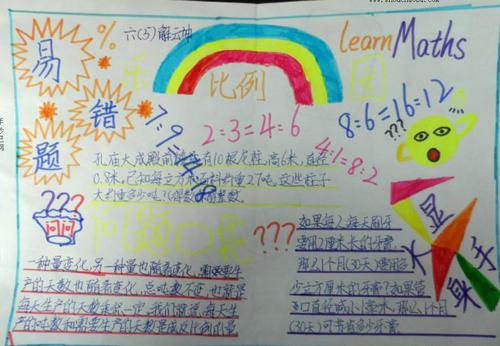 六(5)解云坤
learn Maths
易
错
题
%
乐
园
比例
7:9=14:18
2:3=4:6
8:6=16:12
4:1=8:2
???
孔庙大成殿前 有10根龙柱,高6米,直径
0.8米,已知每立方米石料约重2.7吨,这些柱子
大约重多少吨?(得数保留整数)
???
问题口袋
???
一种量变化,另一种量也随着变化,
产的天数也随着变化,总吨数不变,也就是
每天生产的天数乘积一定,我们就说,每天生
产的吨数和需要生产的天数是成反比例的量
如果每人每天刷牙
要用2厘米长的牙膏,
那么1个月(30天)要用多
少立方厘米的牙膏?如果管
口直径减小1毫米,那么1个月
(30天)可节省多少牙膏
大
显
身
手